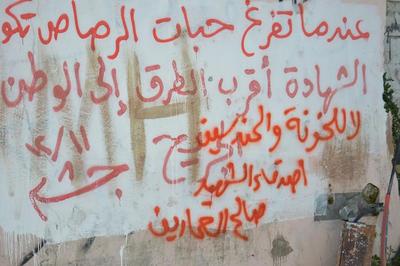 عندما تفرغ حبات الرصاص تكو
الشهادة أقرب الطرق إلى الوطن
لا للخونة والمندسين
١٢/١١
أصدقاء الشهيد
صالح العمارين